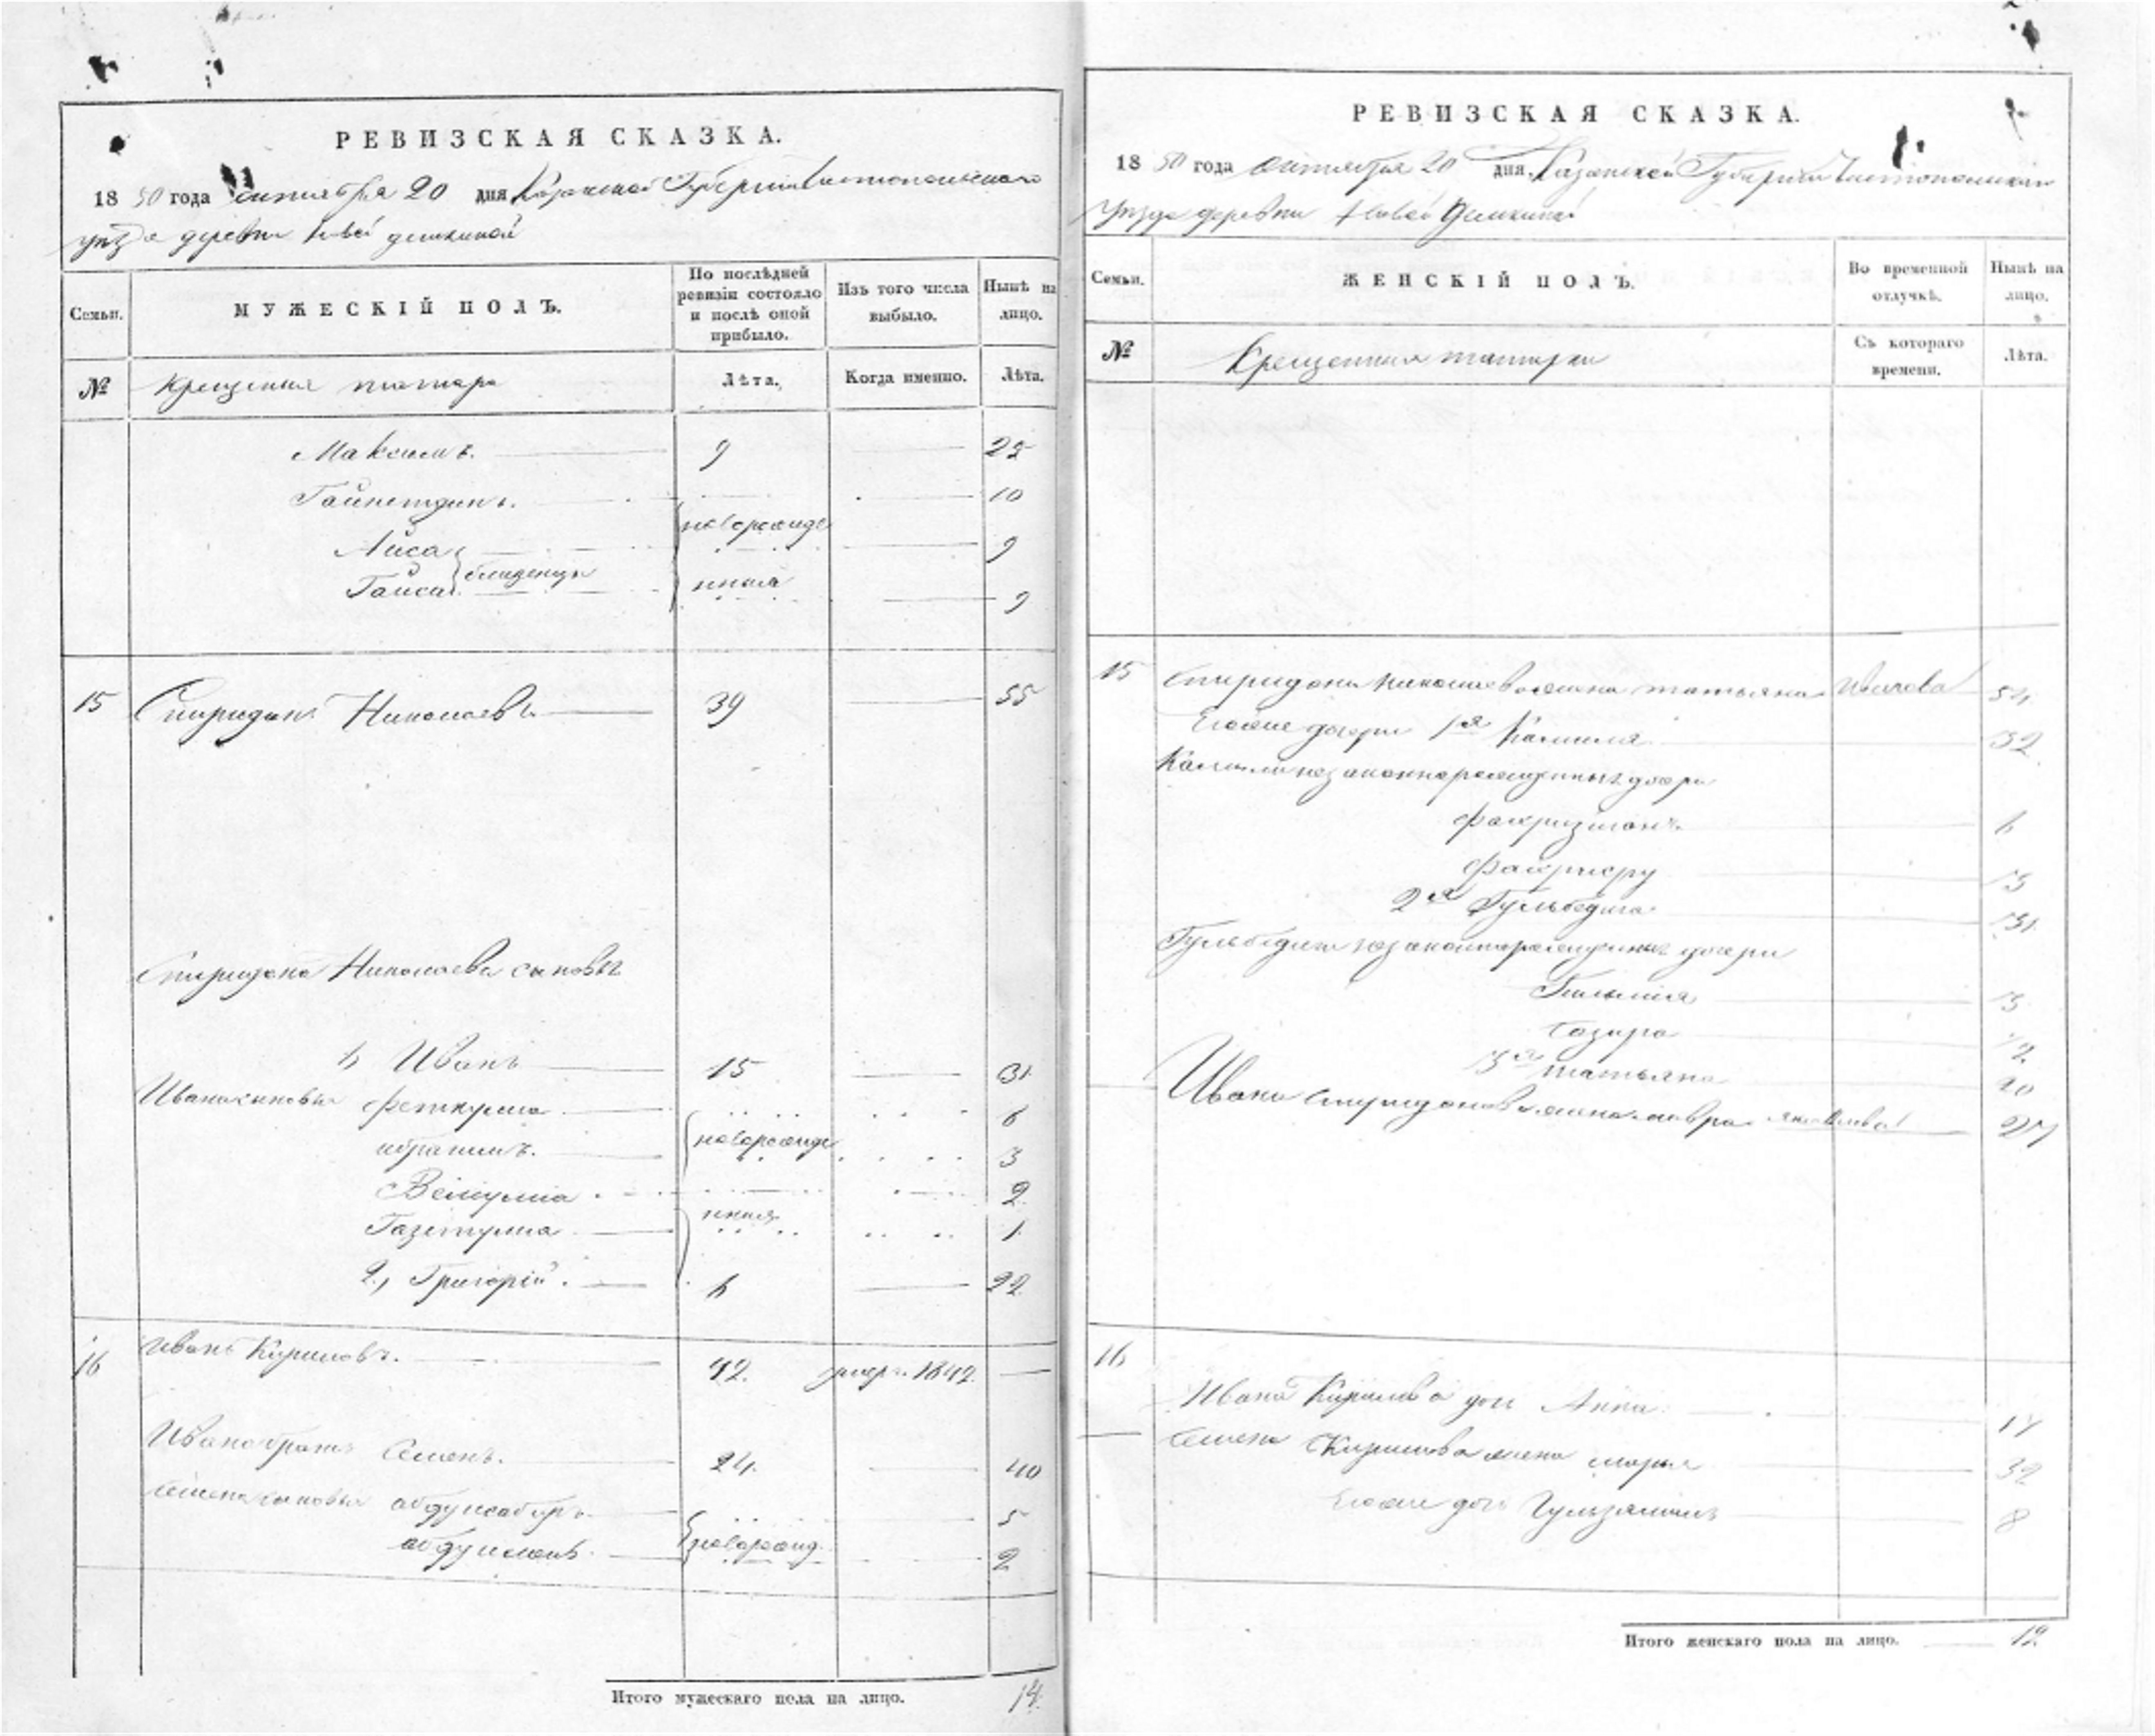 РЕВИЗСКАЯ СКАЗКА.
1850 года октября 20 дня Казанской Губернии Чистопольскаго
уезда деревни Новой демкиной
Семьи.
МУЖЕСКІЙ ПОЛЪ.
По послѣдней ревизіи состояло и послѣ оной прибыло.
Изъ того числа выбыло.
Нынѣ на лицо.
№
Крещеныя татара
Лѣта.
Когда именно.
Лѣта.
Максимъ. 9 25
Гайнетдинъ. 10
новорожде
Айса 9
близнецы
Гайса нныя 9
15 Спиридонъ Николаевъ 39 55
Спиридона Николаева сыновья
1, Иванъ 15 31
Ивана сыновья Феткулла 6
ибрагимъ. новорожде 3
Велиулла 2
нныя
Газетулла 1
2, Григорій 6 22
16 Иванъ Кириловъ. 42. умеръ 1842.
Ивана братъ Семенъ. 24. 40
Семена сыновья абдулсабиръ 5
новорожд. 2
Итого мужескаго пола на лицо. 14.
РЕВИЗСКАЯ СКАЗКА.
1850 года октября 20 дня Казанской Губернии Чистопольскаго
уезда деревни Новой Демкиной
Семьи.
ЖЕНСКІЙ ПОЛЪ.
Во временной отлучкѣ.
Нынѣ на лицо.
№
Крещенныя татарки
Съ котораго времени.
Лѣта.
15 Спиридона Николаева жена татьяна 54
Егоже дочери 1я Камиля 32
незаконнорожденныя дочери
6
3
2я Гульбедига 31
незаконнорожденныя дочери
3
2
3я татьяна 20
Ивана Спиридонова жена мавра яковлева 27
16
Ивана Кирилова дочь Анна 17
Семена Кирилова жена марья 32
Егоже дочь 8
Итого женскаго пола на лицо. 12